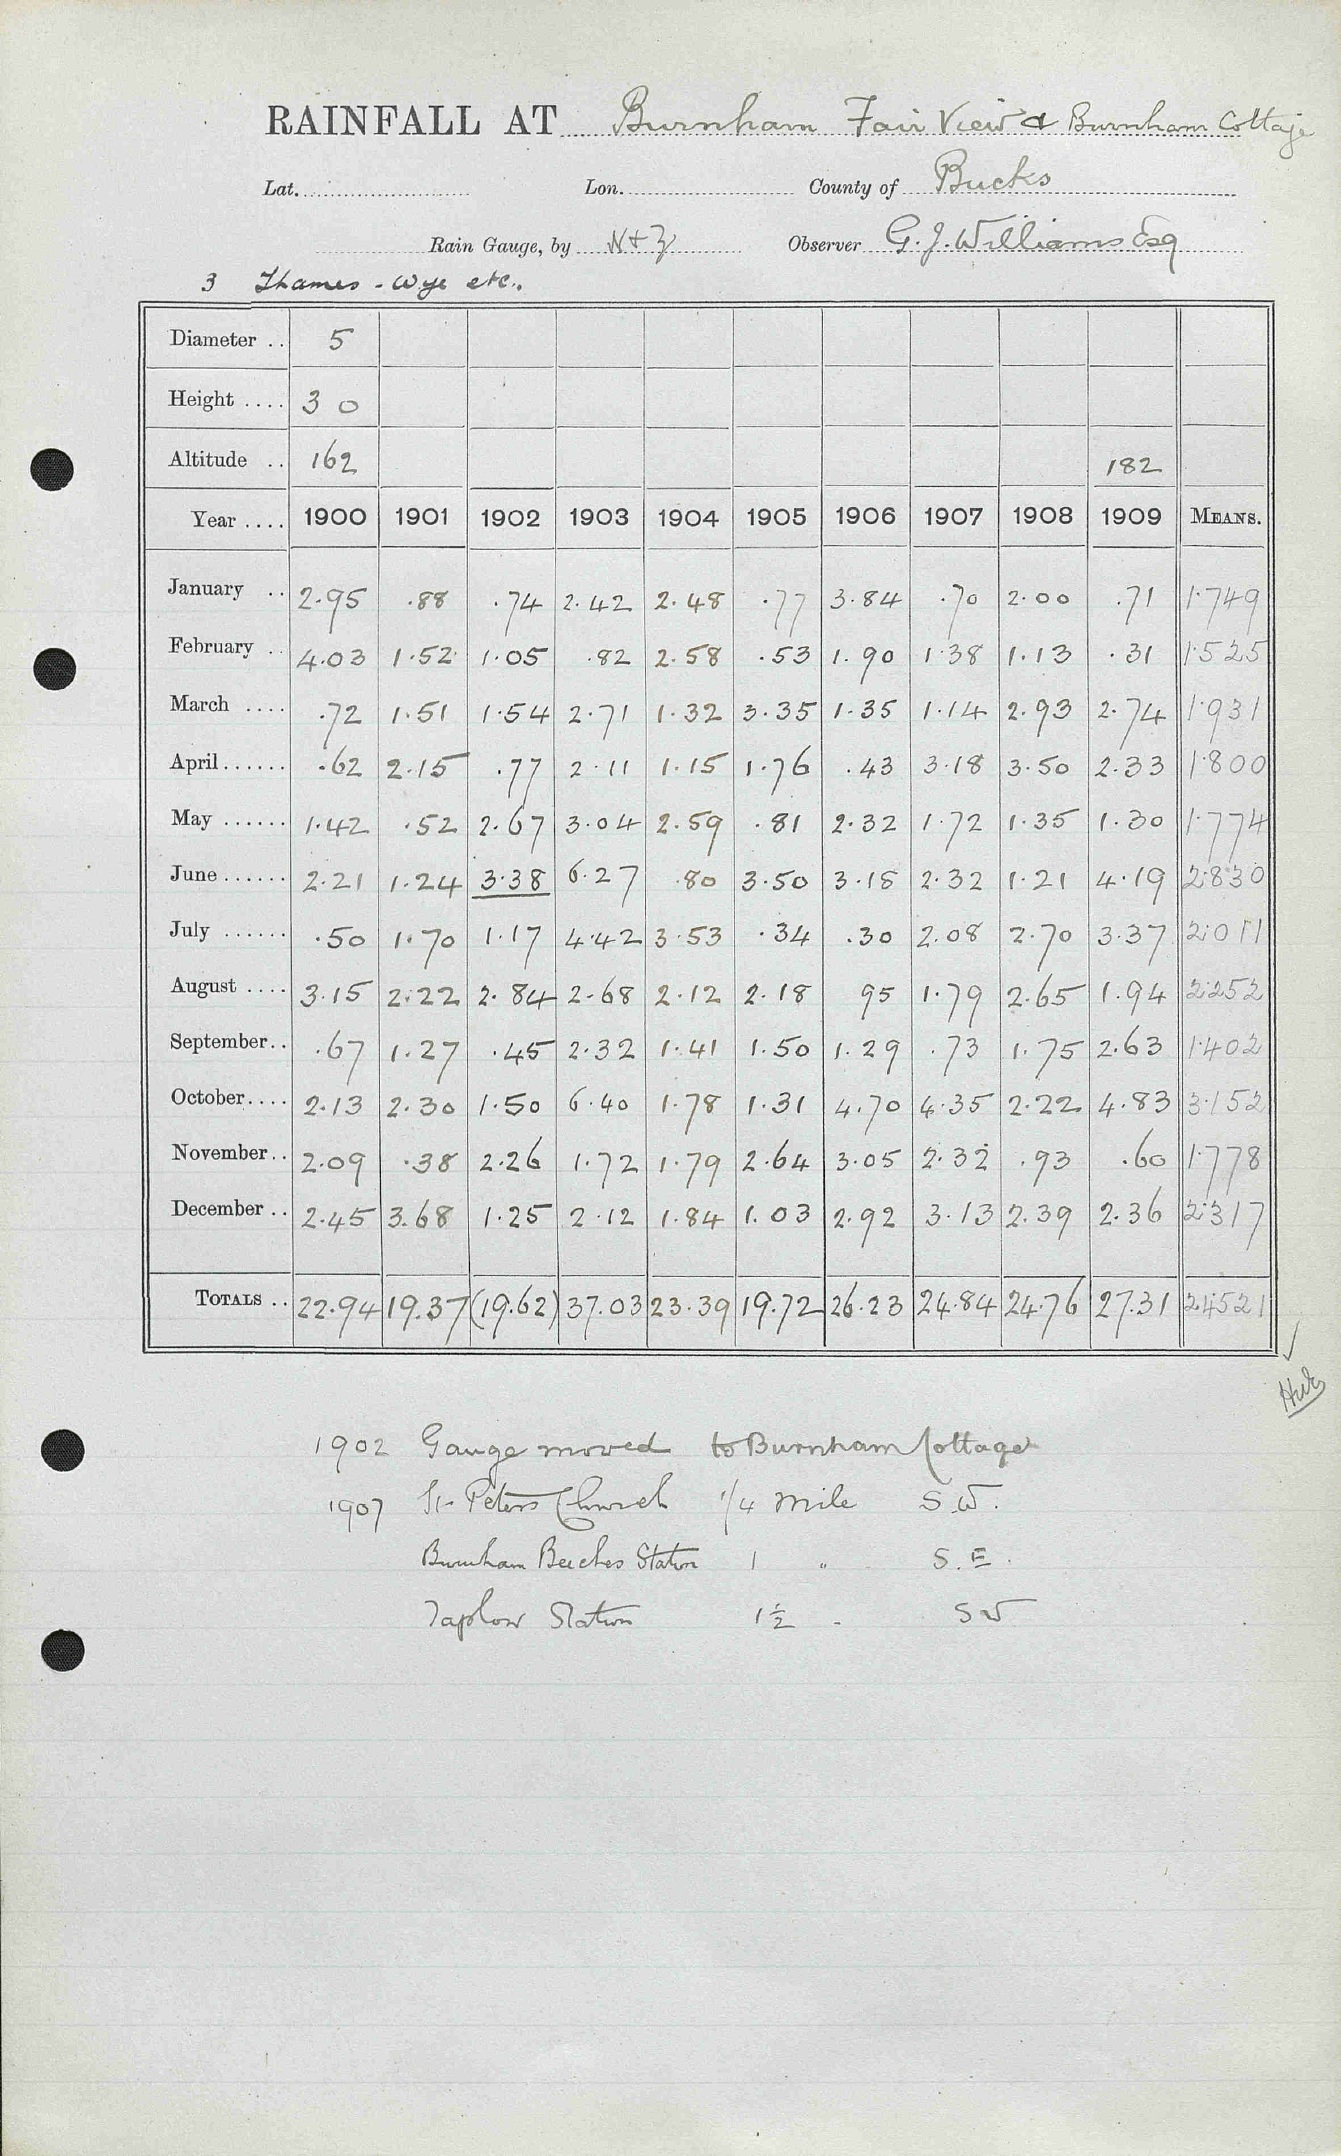 RAINFALL AT Burnham Fair View & Burnham Cottage
Lat. Lon. County of Bucks
Rain Gauge, by N+Z Observer G. J. Williams Esq
3 Thames - Wye etc.
Diameter .. 5
Height .... 3 0
Altitude .. 162 182
Year .... 1900 1901 1902 1903 1904 1905 1906 1907 1908 1909 MEANS.
January .. 2.95 .88 .74 2.42 2.48 .77 3.84 .70 2.00 .71 1.749
February .. 4.03 1.52 1.05 .82 2.58 .53 1.90 1.38 1.13 .31 1.525
March .... .72 1.51 1.54 2.71 1.32 3.35 1.35 1.14 2.93 2.74 1.931
April...... .62 2.15 .77 2.11 1.15 1.76 .43 3.18 3.50 2.33 1.800
May ...... 1.42 .52 2.67 3.04 2.59 .81 2.32 1.72 1.35 1.30 1.774
June...... 2.21 1.24 3.38 6.27 .80 3.50 3.18 2.32 1.21 4.19 2.830
July ...... .50 1.70 1.17 4.42 3.53 .34 .30 2.08 2.70 3.37 2.011
August .... 3.15 2.22 2.84 2.68 2.12 2.18 95 1.79 2.65 1.94 2.252
September.. .67 1.27 .45 2.32 1.41 1.50 1.29 .73 1.75 2.63 1.402
October.... 2.13 2.30 1.50 6.40 1.78 1.31 4.70 4.35 2.22 4.83 3.152
November.. 2.09 .38 2.26 1.72 1.79 2.64 3.05 2.32 .93 .60 1.778
December .. 2.45 3.68 1.25 2.12 1.84 1.03 2.92 3.13 2.39 2.36 2.317
TOTALS .. 22.94 19.37 (19.62) 37.03 23.39 19.72 26.23 24.84 24.76 27.31 24.521
1902 Gauge moved to Burnham Cottage
1907 St Peters Church 1/4 mile S.W.
Burnham Beeches Station 1 " S.E.
Taplow Station 1½ " SW